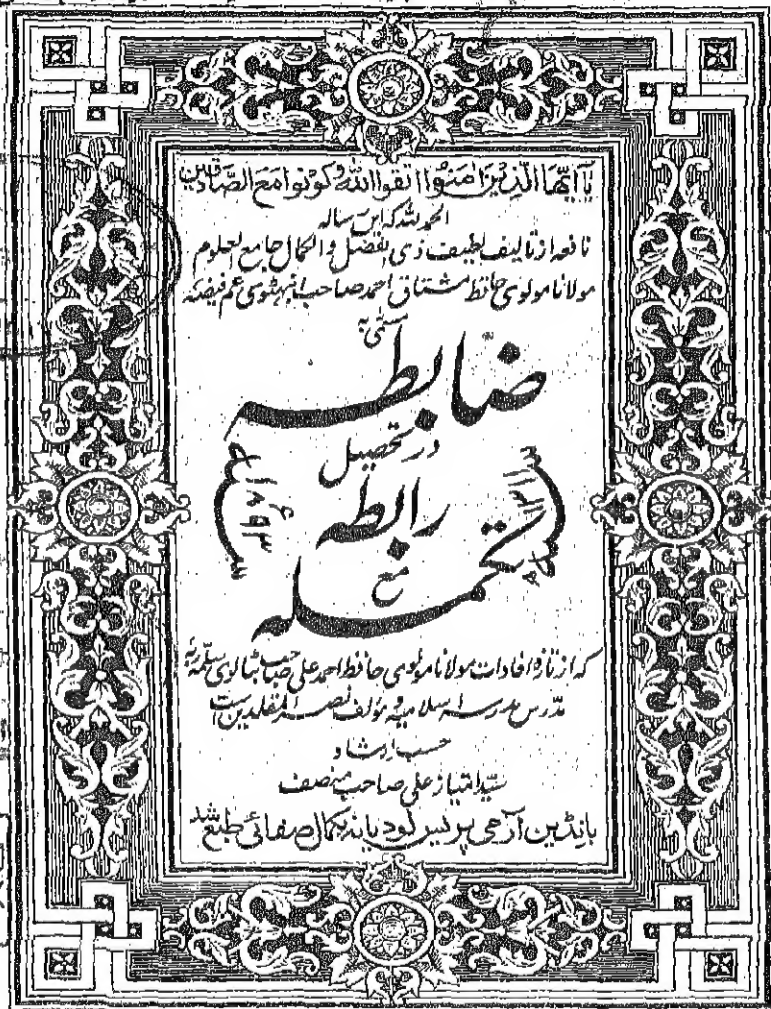 يَا أَيُّهَا الَّذِينَ آمَنُوا اتَّقُوا اللَّهَ وَكُونُوا مَعَ الصَّادِقِينَ
الحمد لله که این رساله
نافعه از تالیف لطیف ذی الفضل والکمال جامع العلوم
مولانا مولوی حافظ مشتاق احمد صاحب انبہٹوی عم فیضہ
مسمی بہ
ضابطہ
در تحصیل
رابطہ
مع
تکملہ
کہ از تازہ افادات مولانا مولوی حافظ احمد علی صاحب بٹالوی سلمہ ربہ
مدرس مدرسہ اسلامیہ و مؤلف نصرۃ المقلدین است
حسب ارشاد
سید امتیاز علی صاحب منصف
بانڈین آرمی پریس لودیانہ بکمال صفائی طبع شد